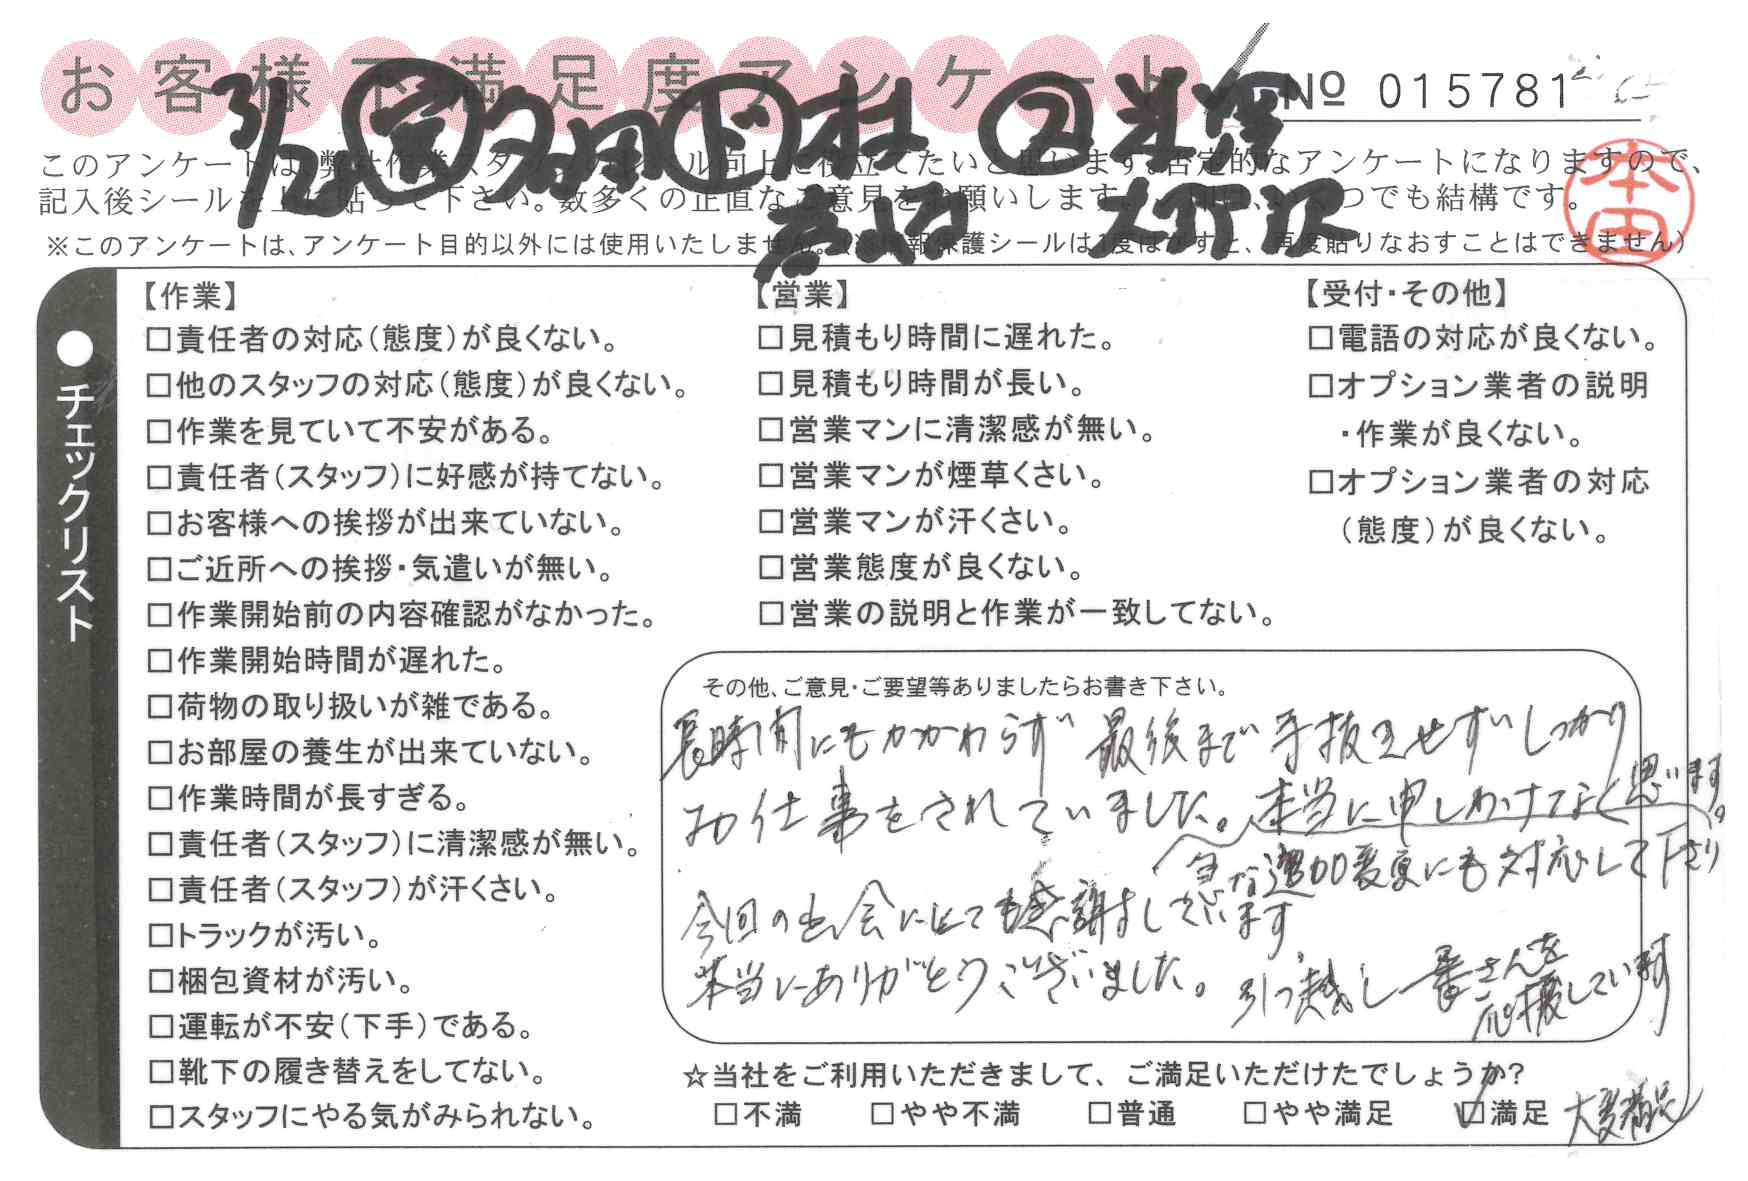 お客様不満足度アンケート
№ 015781
3/12 営 多田 下 村 2 米澤
高畑 大野沢
本田
このアンケートは、弊社作業スタッフのレベル向上に役立てたいと思います。否定的なアンケートになりますので、
記入後シールを上に貼って下さい。数多くの正直なご意見をお願いします。 いくつでも結構です。
※このアンケートは、アンケート目的以外には使用いたしません。(※情報保護シールは1度はがすと、再度貼りなおすことはできません)
●チェックリスト
【作業】
□責任者の対応(態度)が良くない。
□他のスタッフの対応(態度)が良くない。
□作業を見ていて不安がある。
□責任者(スタッフ)に好感が持てない。
□お客様への挨拶が出来ていない。
□ご近所への挨拶・気遣いが無い。
□作業開始前の内容確認がなかった。
□作業開始時間が遅れた。
□荷物の取り扱いが雑である。
□お部屋の養生が出来ていない。
□作業時間が長すぎる。
□責任者(スタッフ)に清潔感が無い。
□責任者(スタッフ)が汗くさい。
□トラックが汚い。
□梱包資材が汚い。
□運転が不安(下手)である。
□靴下の履き替えをしてない。
□スタッフにやる気がみられない。
【営業】
□見積もり時間に遅れた。
□見積もり時間が長い。
□営業マンに清潔感が無い。
□営業マンが煙草くさい。
□営業マンが汗くさい。
□営業態度が良くない。
□営業の説明と作業が一致してない。
【受付・その他】
□電話の対応が良くない。
□オプション業者の説明
・作業が良くない。
□オプション業者の対応
(態度)が良くない。
その他、ご意見・ご要望等ありましたらお書き下さい。
長時間にもかかわらず 最後まで手抜きせずしっかり
お仕事をされていました。本当に申しわけなく思います。
急な追加変更にも対応して下さり
今回の出会にとても感謝しています
本当にありがとうございました。引っ越し一番さんを
応援しています
☆当社をご利用いただきまして、ご満足いただけたでしょうか?
□不満 □やや不満 □普通 □やや満足 ☑満足 大変満足